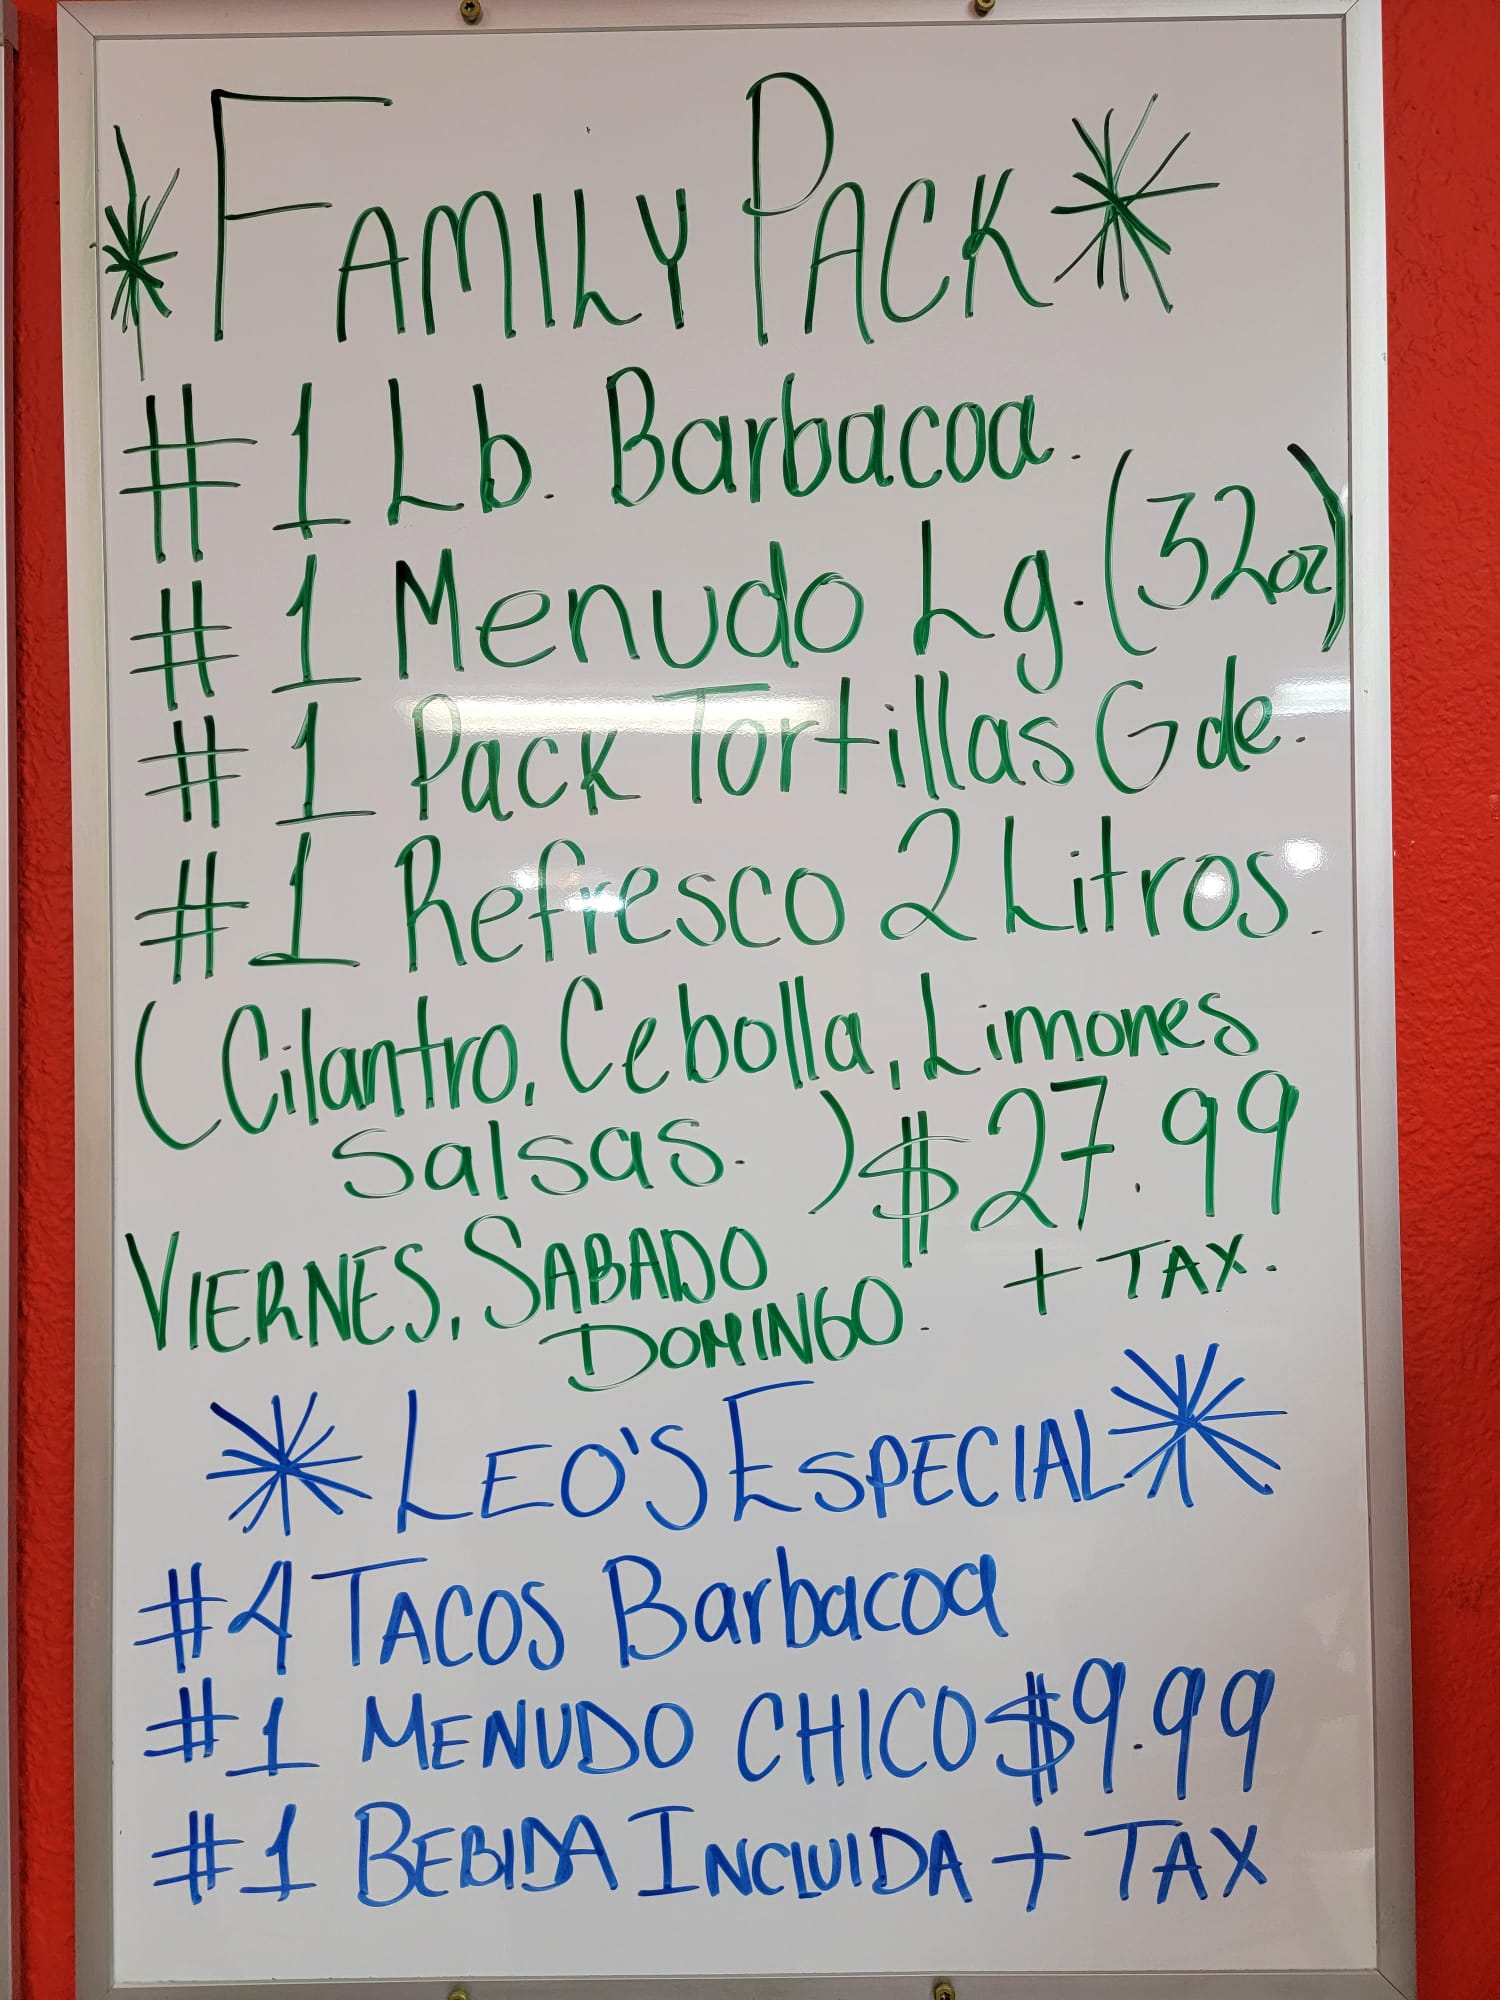 Family Pack
# 1 Lb. Barbacoa.
# 1 Menudo Lg. (32oz)
# 1 Pack Tortillas Gde.
# 1 Refresco 2 Litros.
(Cilantro, Cebolla, Limones
Salsas.) $27.99
+ TAX.
VIERNES, SABADO
DOMINGO.
LEO'S ESPECIAL
#4 TACOS Barbacoa
#1 MENUDO CHICO $9.99
#1 BEBIDA INCLUIDA + TAX